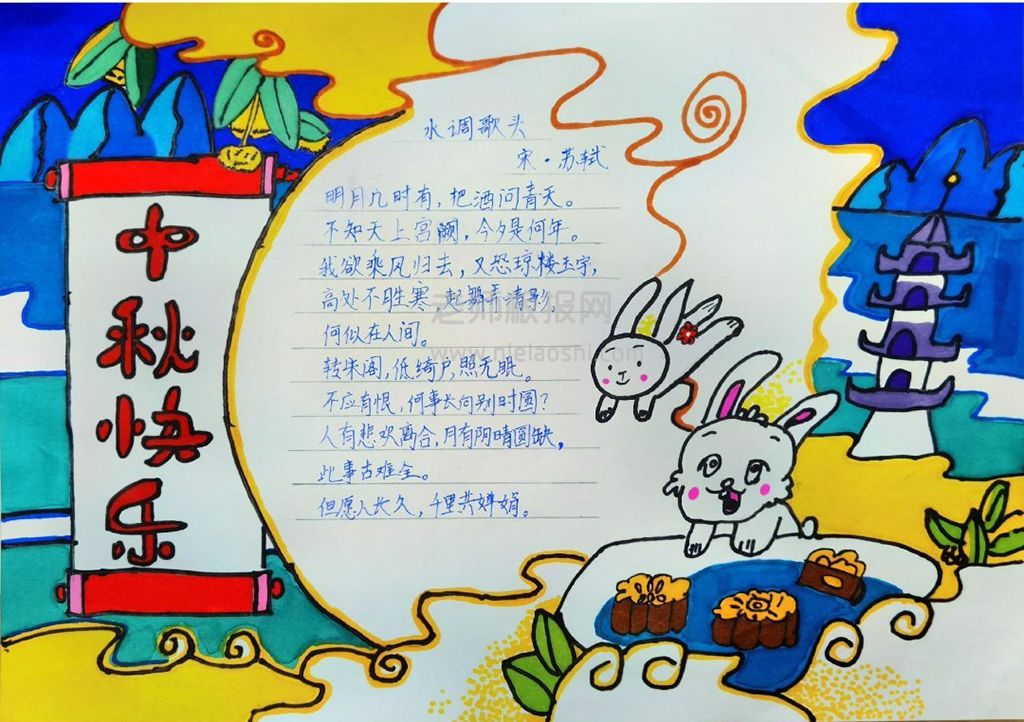 中秋快乐
水调歌头
宋·苏轼
明月几时有，把酒问青天。
不知天上宫阙，今夕是何年。
我欲乘风归去，又恐琼楼玉宇，
高处不胜寒 起舞弄清影，
何似在人间。
转朱阁，低绮户，照无眠。
不应有恨，何事长向别时圆？
人有悲欢离合，月有阴晴圆缺，
此事古难全。
但愿人长久，千里共婵娟。
老师板报网
www.nielaoshi.com